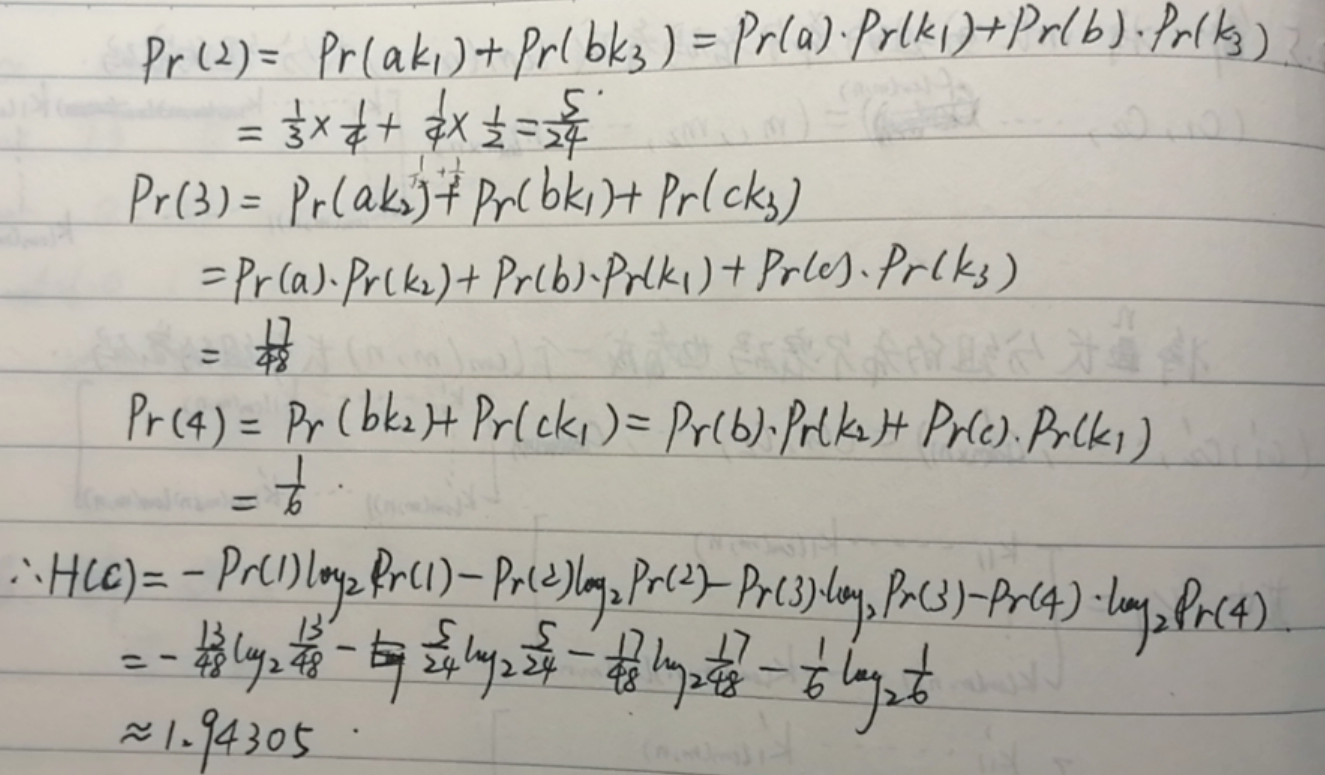 Pr(2) = Pr(ak₁) + Pr(bk₃) = Pr(a)·Pr(k₁) + Pr(b)·Pr(k₃)
= 1/3 × 1/4 + 1/4 × 1/2 = 5/24
Pr(3) = Pr(ak₂) + Pr(bk₁) + Pr(ck₃)
= Pr(a)·Pr(k₂) + Pr(b)·Pr(k₁) + Pr(c)·Pr(k₃)
= 17/48
Pr(4) = Pr(bk₂) + Pr(ck₁) = Pr(b)·Pr(k₂) + Pr(c)·Pr(k₁)
= 1/6
∴ H(C) = -Pr(1)log₂Pr(1) - Pr(2)log₂Pr(2) - Pr(3)·log₂Pr(3) - Pr(4)·log₂Pr(4).
= - 13/48 log₂ 13/48 - 5/24 log₂ 5/24 - 17/48 log₂ 17/48 - 1/6 log₂ 1/6
≈ 1.94305